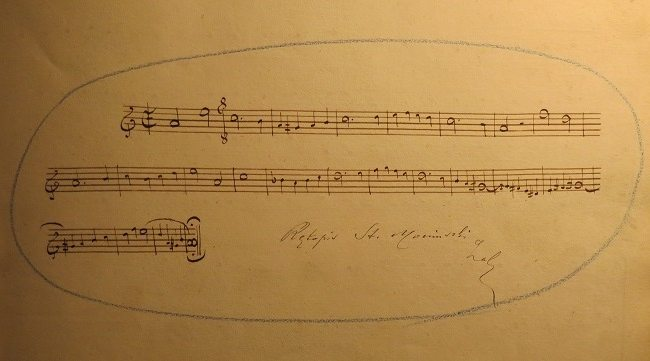 Rękopis St. Moniuszki